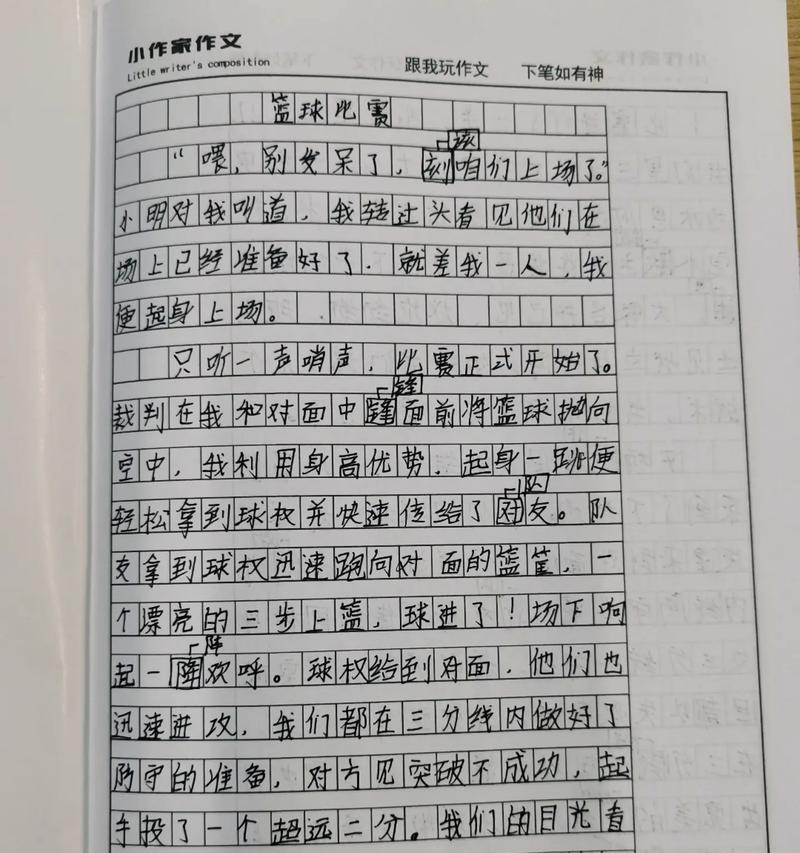 小作家作文
Little writer's composition
跟我玩作文 下笔如有神
篮球比赛
该
“喂，别发呆了，刻咱们上场了。”
小明对我叫道，我转过头看见他们在
场上已经准备好了．就差我一人，我
便起身上场。
只听一声哨声，比赛正式开始了。
锋
裁判在我和对面中缝面前将篮球抛向
空中，我利用身高优势．起身一跳便
队
轻松拿到球权并快速传给了对友。队
友拿到球权迅速跑向对面的篮筐．一
个漂亮的三步上篮，球进了！场下响
阵
起一阵欢呼。球权给到对面．他们也
迅速进攻，我们都在三分线内做好了
防守的准备，对方见突破不成功，起
手投了一个超远二分。我们的目光看